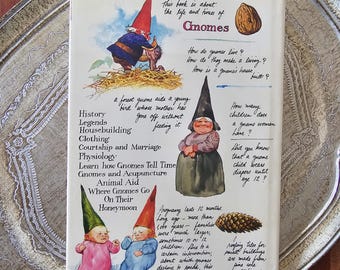 This book is about
the life and times of
Gnomes
How do gnomes live?
How do they make a living?
How is a gnomes house
built?
a forest gnome aids a young
bird whose mother has
gone off without
feeding it
History
Legends
Housebuilding
Clothing
Courtship and Marriage
Physiology
Learn how Gnomes Tell Time
Gnomes and Acupuncture
Animal Aid
Where Gnomes Go
On Their
Honeymoon
How many
children does
a gnome woman
have?
Did you know
that a gnome
child wears
diapers until
age 12?
Pregnancy lasts 12 months
long ago - more than
years - families
were much larger
sometimes
Due to a
certain intervention,
about which gnomes
decline to speak, this